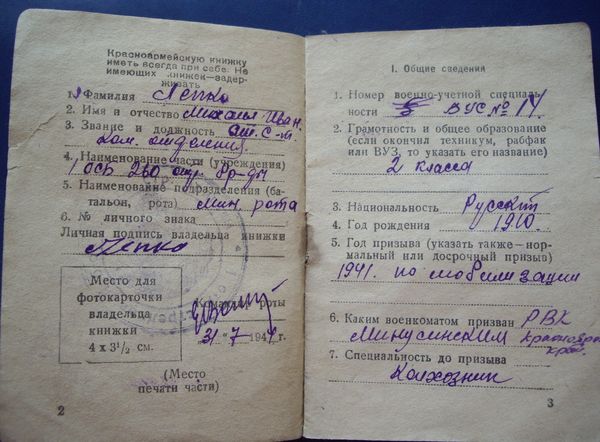 Красноармейскую книжку
иметь всегда при себе. Не
имеющих книжек—задер-
живать
1. Фамилия Лепко
2. Имя и отчество Михаил Иван.
3. Звание и должность Ст. С-т.
Ком. отделения
4. Наименование части (учреждения)
1 ОСБ 260 отд. бр-ды
5. Наименование подразделения (ба-
тальон, рота) мин. рота
6. № личного знака
Личная подпись владельца книжки
Лепко
Место для
фотокарточки
владельца
книжки
4 х 3½ см.
Командир роты
31 " 7 194 г.
(Место
печати части)
2
I. Общие сведения
1. Номер военно-учетной специаль-
ности ВУС № 14
2. Грамотность и общее образование
(если окончил техникум, рабфак
или ВУЗ, то указать его название)
2 класса
3. Национальность Русский
4. Год рождения 1910.
5. Год призыва (указать также—нор-
мальный или досрочный призыв)
1941. по мобилизации
6. Каким военкоматом призван РВК
Минусинским Красноярс
края.
7. Специальность до призыва
Колхозник
3